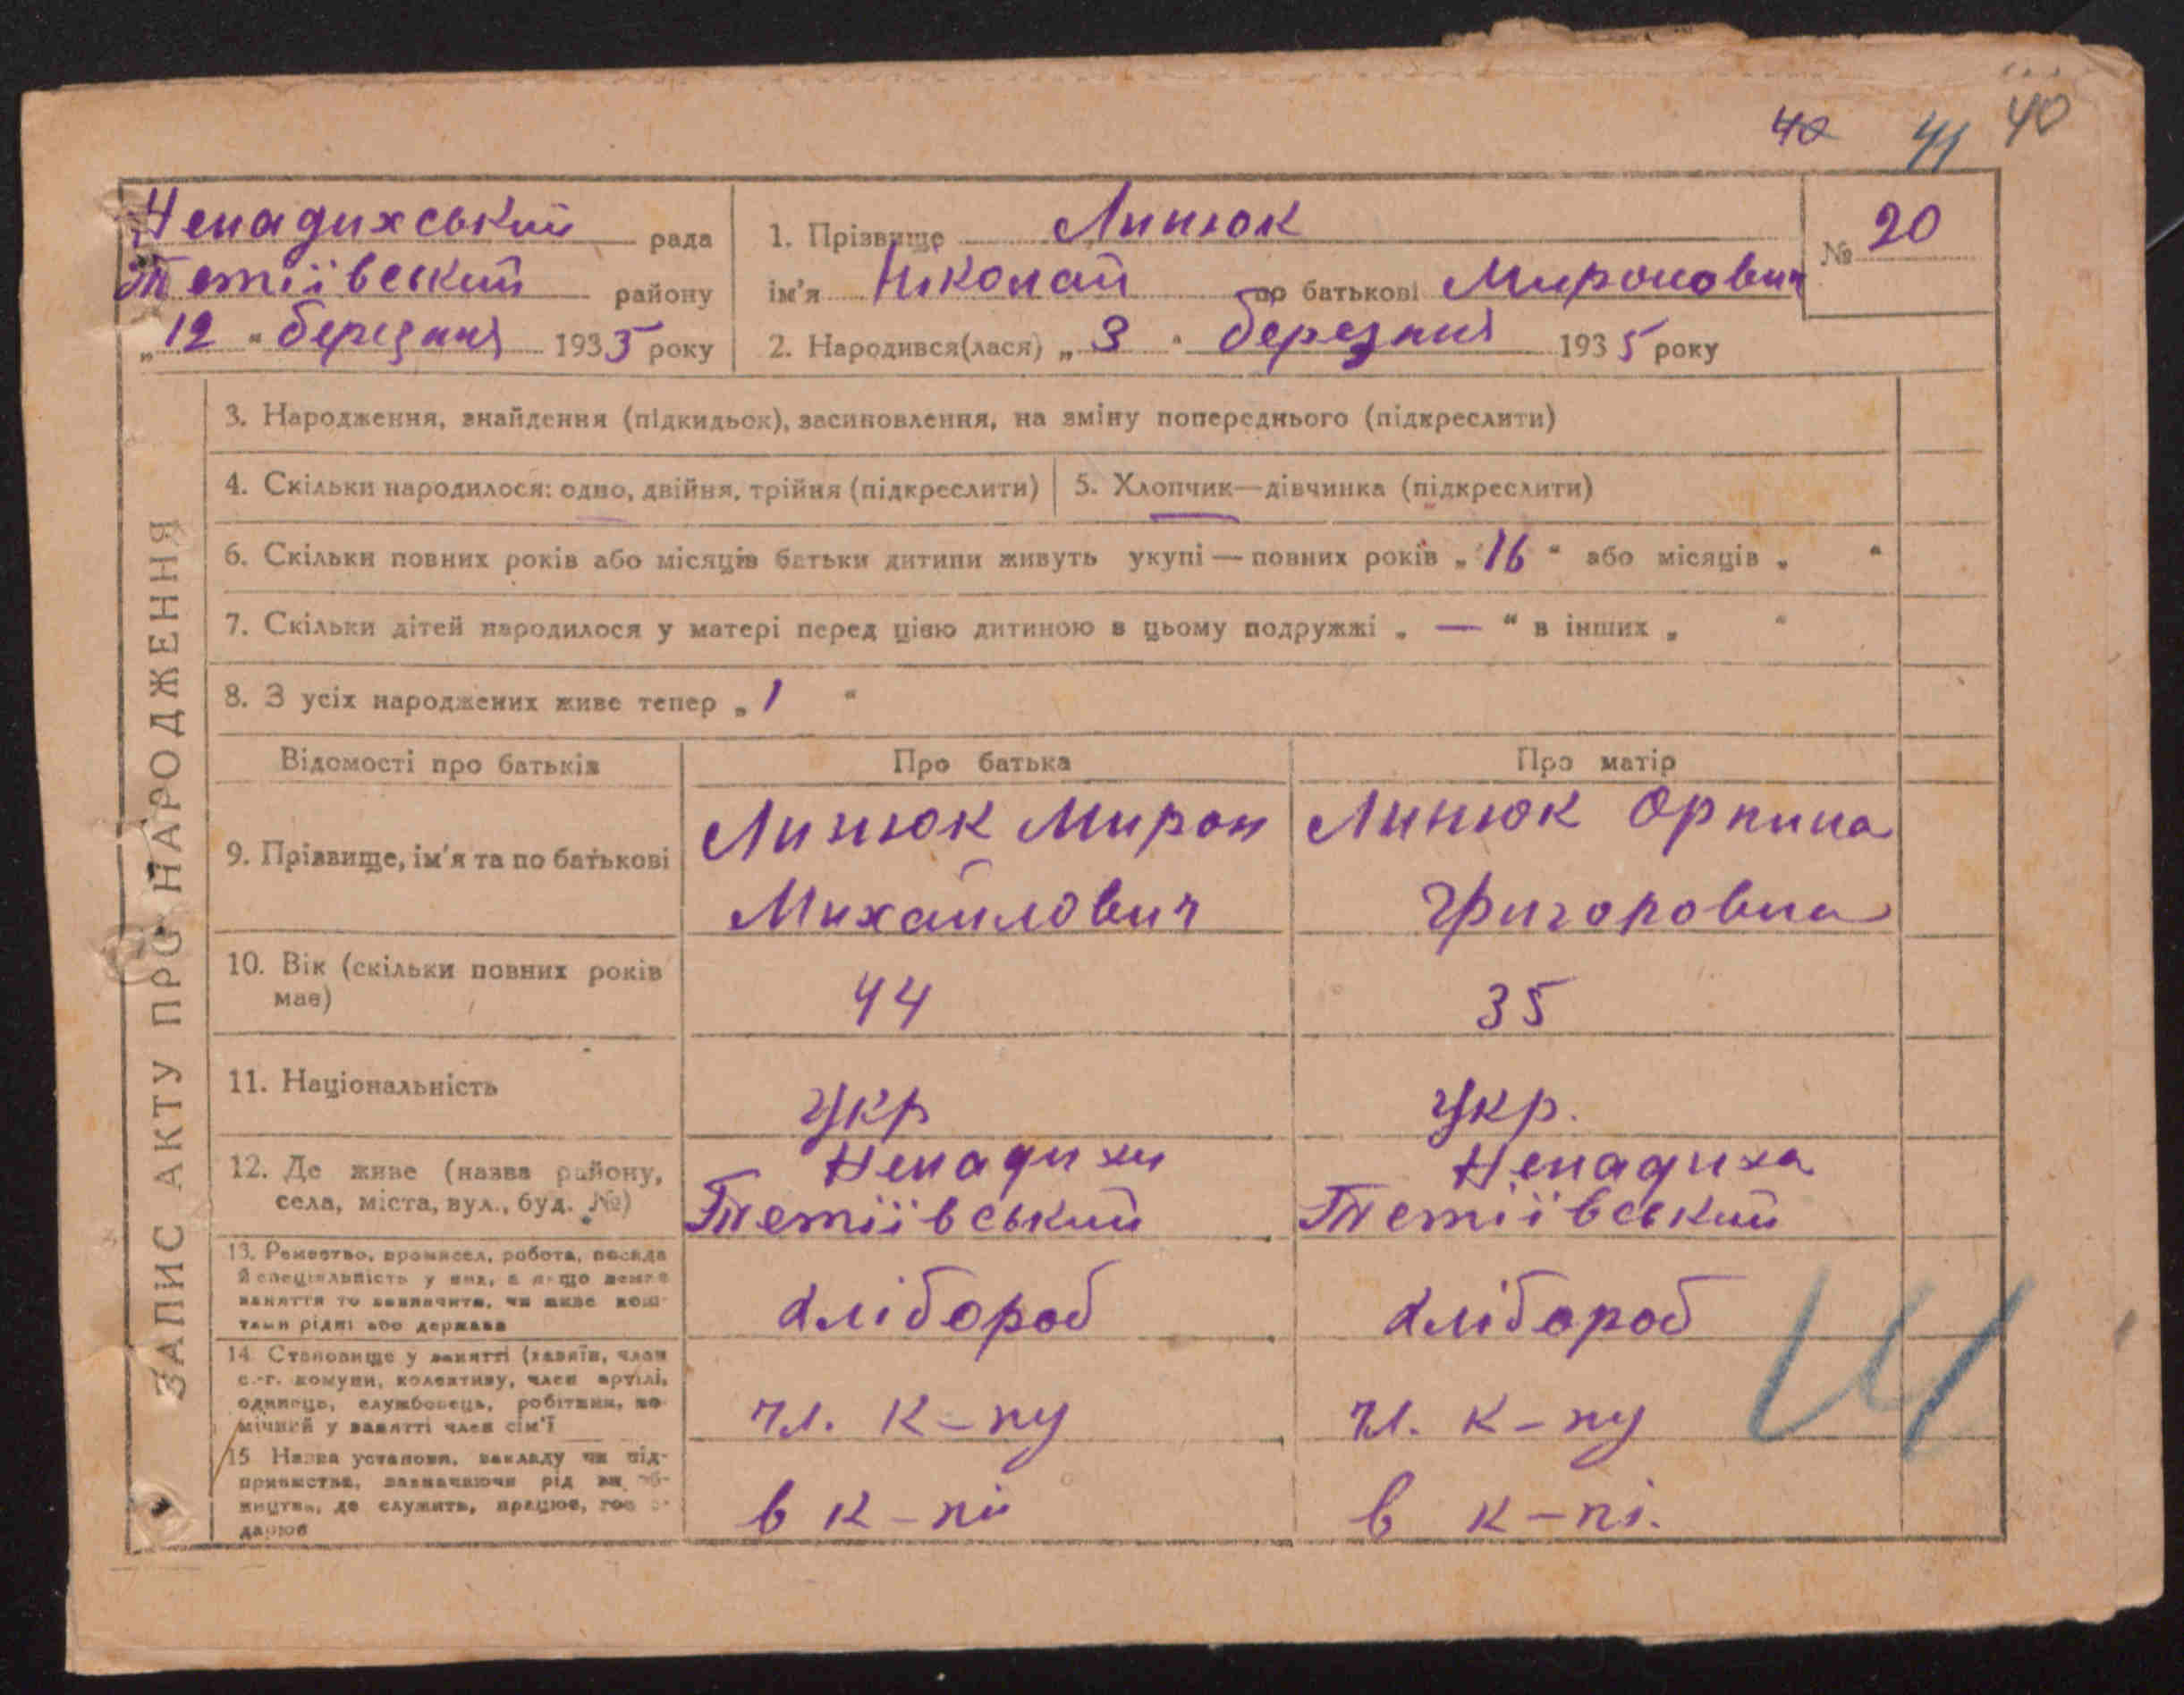 42 41 40
Ненадихський рада
Тетіївський району
„12“ березния 1935 року
1. Прізвище Линюк
ім'я Ніколай по батькові Миронович
2. Народився(лася) „3“ березния 1935 року
№ 20
ЗАПИС АКТУ ПРО НАРОДЖЕННЯ
3. Народження, знайдення (підкидьок), засиновлення, на зміну попереднього (підкреслити)
4. Скільки народилося: одно, двійня, трійня (підкреслити)
5. Хлопчик—дівчинка (підкреслити)
6. Скільки повних років або місяців батьки дитини живуть укупі — повних років „16“ або місяців „ “
7. Скільки дітей народилося у матері перед цією дитиною в цьому подружжі „—“ в інших „ “
8. З усіх народжених живе тепер „1“
Відомості про батьків Про батька Про матір
9. Прізвище, ім'я та по батькові
Линюк Мирон
Михайлович
Линюк Орпина
Григоровна
10. Вік (скільки повних років
має)
44 35
11. Національність
Укр Укр.
12. Де живе (назва району,
села, міста, вул., буд. №)
Ненадихи
Тетіївський
Ненадиха
Тетіївський
13. Ремество, промисел, робота, посада
й спеціяльність у них, а якщо немає
заняття то зазначити, чи живе кош-
тами рідні або держави
хлібороб хлібороб
14. Становище у занятті (хазяїн, член
с.-г. комуни, колективу, член артілі,
одинець, службовець, робітник, по-
мічний у занятті член сім'ї
чл. к-пу чл. к-пу
15. Назва установи, закладу чи під-
приємства, зазначаючи рід ви об-
ництва, де служить, працює, гос о-
дарює
в к-пі в к-пі.